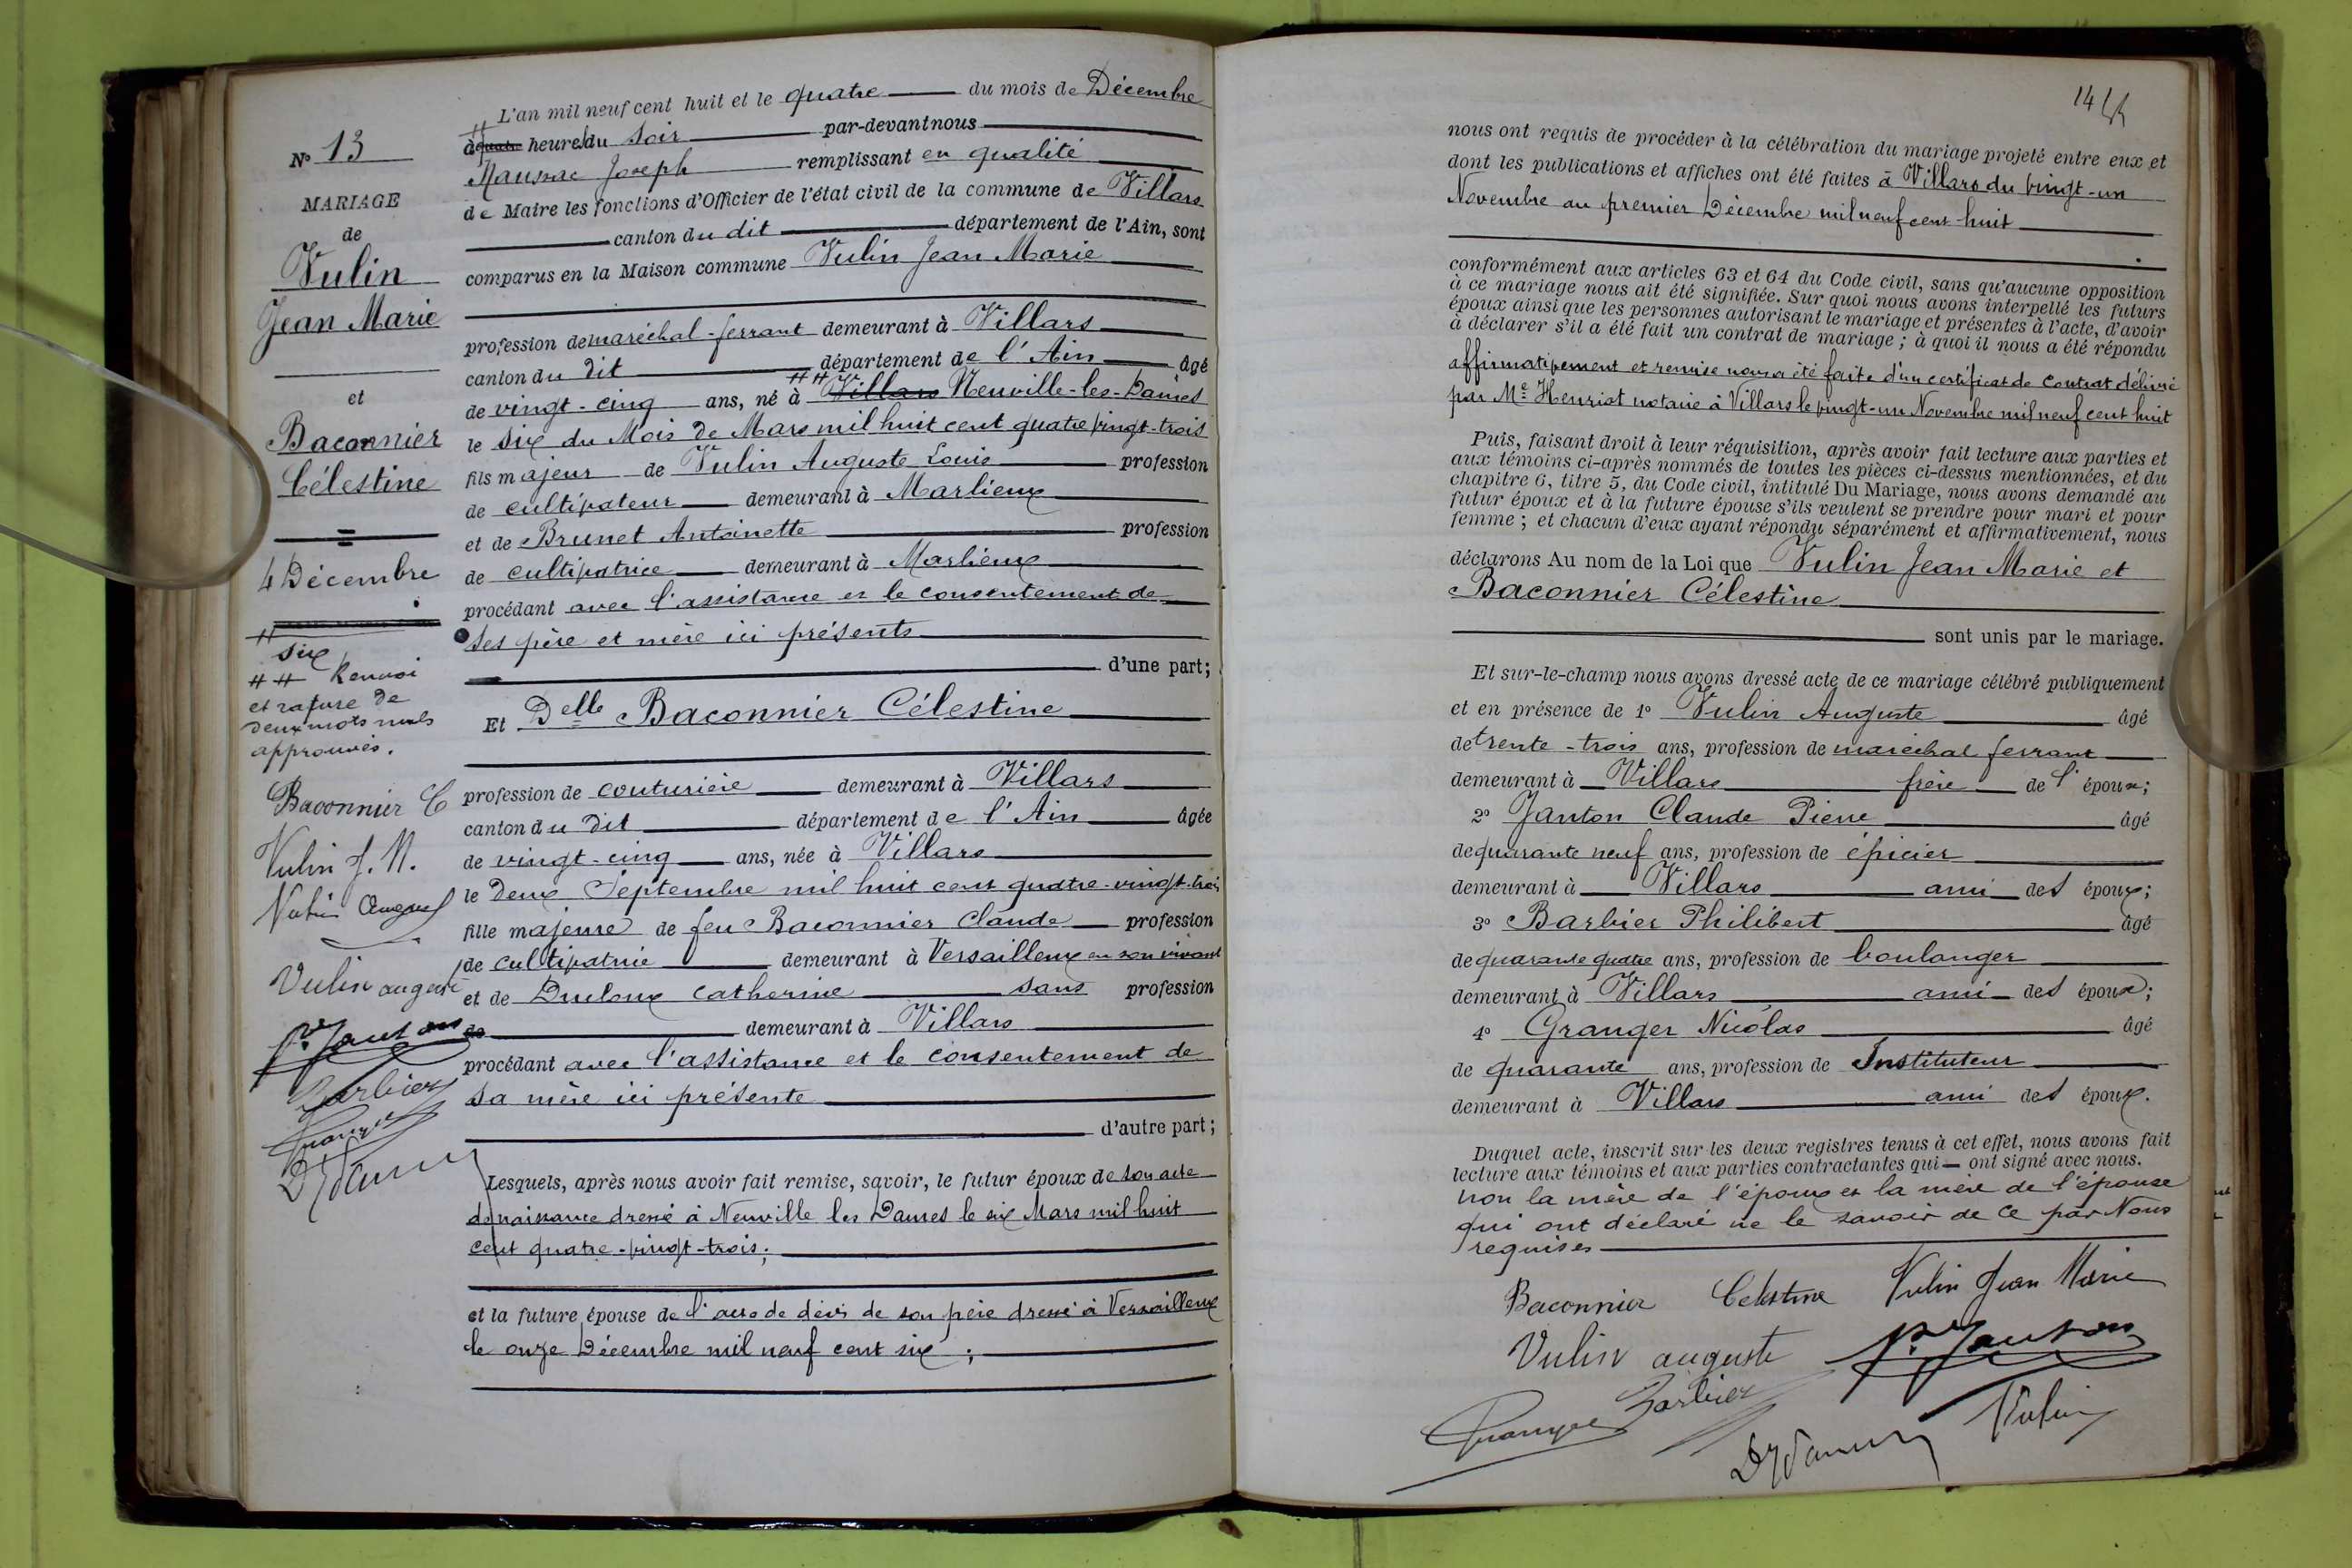 N° 13
MARIAGE
de
Vulin
Jean Marie
et
Baconnier
Célestine
4 Décembre
# six
## Renvoi
et rature de
deux mots nuls
approuvés.
Baconnier C
Vulin J. M.
Vulin
Vulin auguste
P. Janton
Barbier
Granger
L'an mil neuf cent huit et le quatre du mois de Décembre
à # quatre heures du soir par-devant nous
Maussac Joseph remplissant en qualité
de Maire les fonctions d'Officier de l'état civil de la commune de Villars
canton du dit département de l'Ain, sont
comparus en la Maison commune Vulin Jean Marie
profession de maréchal-ferrant demeurant à Villars
canton du dit département de l'Ain âgé
de vingt-cinq ans, né à ## Villars Neuville-les-Dames
le six du Mois de Mars mil huit cent quatre vingt-trois
fils majeur de Vulin Auguste Louis profession
de cultivateur demeurant à Marlieux
et de Brunet Antoinette profession
de cultivatrice demeurant à Marlieux
procédant avec l'assistance et le consentement de
ses père et mère ici présents
d'une part;
Et Delle Baconnier Célestine
profession de couturière demeurant à Villars
canton du dit département de l'Ain âgée
de vingt-cinq ans, née à Villars
le deux Septembre mil huit cent quatre-vingt-trois
fille majeure de feu Baconnier Claude profession
de cultivatrice demeurant à Versailleux en son vivant
et de Ducloux Catherine sans profession
de demeurant à Villars
procédant avec l'assistance et le consentement de
sa mère ici présente
d'autre part;
Lesquels, après nous avoir fait remise, savoir, le futur époux de son acte
de naissance dressé à Neuville les Dames le six Mars mil huit
cent quatre-vingt-trois;
et la future épouse de l'acte de décès de son père dressé à Versailleux
le onze Décembre mil neuf cent six;
nous ont requis de procéder à la célébration du mariage projeté entre eux et
dont les publications et affiches ont été faites à Villars du vingt-un
Novembre au premier Décembre mil neuf cent huit
conformément aux articles 63 et 64 du Code civil, sans qu'aucune opposition
à ce mariage nous ait été signifiée. Sur quoi nous avons interpellé les futurs
époux ainsi que les personnes autorisant le mariage et présentes à l'acte, d'avoir
à déclarer s'il a été fait un contrat de mariage; à quoi il nous a été répondu
affirmativement et remise nous a été faite d'un certificat de Contrat délivré
par Me Henriot notaire à Villars le vingt-un Novembre mil neuf cent huit
Puis, faisant droit à leur réquisition, après avoir fait lecture aux parties et
aux témoins ci-après nommés de toutes les pièces ci-dessus mentionnées, et du
chapitre 6, titre 5, du Code civil, intitulé Du Mariage, nous avons demandé au
futur époux et à la future épouse s'ils veulent se prendre pour mari et pour
femme; et chacun d'eux ayant répondu séparément et affirmativement, nous
déclarons Au nom de la Loi que Vulin Jean Marie et
Baconnier Célestine
sont unis par le mariage.
Et sur-le-champ nous avons dressé acte de ce mariage célébré publiquement
et en présence de 1° Vulin Auguste âgé
de trente-trois ans, profession de maréchal ferrant
demeurant à Villars frère de l'époux;
2° Janton Claude Pierre âgé
de quarante neuf ans, profession de épicier
demeurant à Villars ami des époux;
3° Barbier Philibert âgé
de quarante quatre ans, profession de boulanger
demeurant à Villars ami des époux;
4° Granger Nicolas âgé
de quarante ans, profession de Instituteur
demeurant à Villars ami des époux.
Duquel acte, inscrit sur les deux registres tenus à cet effet, nous avons fait
lecture aux témoins et aux parties contractantes qui ont signé avec nous.
non la mère de l'époux et la mère de l'épouse
qui ont déclaré ne le savoir de ce par Nous
requises
Baconnier Celestine Vulin Jean Marie
Vulin auguste P. Janton
Granger Barbier Vulin